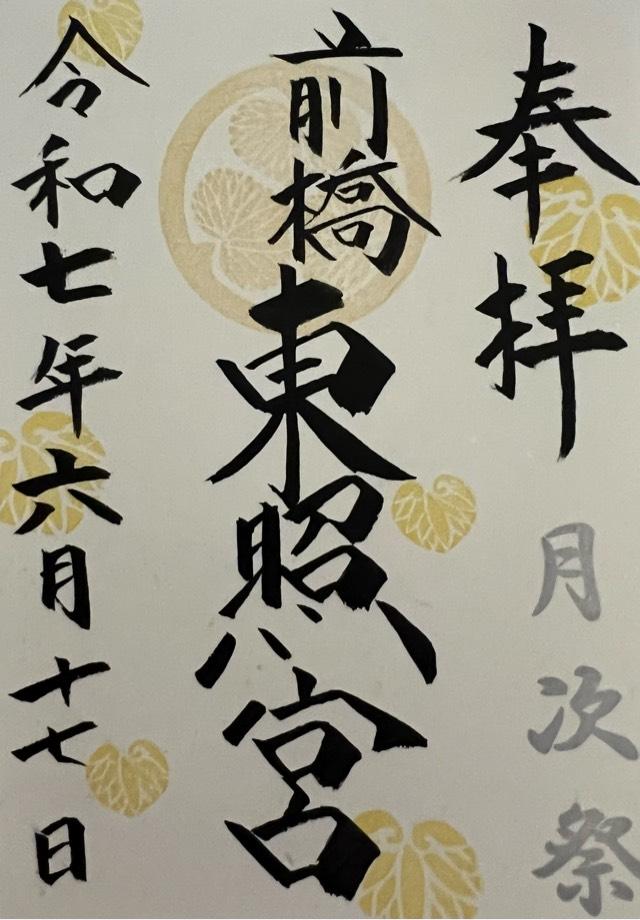 奉拝
月次祭
前橋
東照宮
令和七年六月十七日